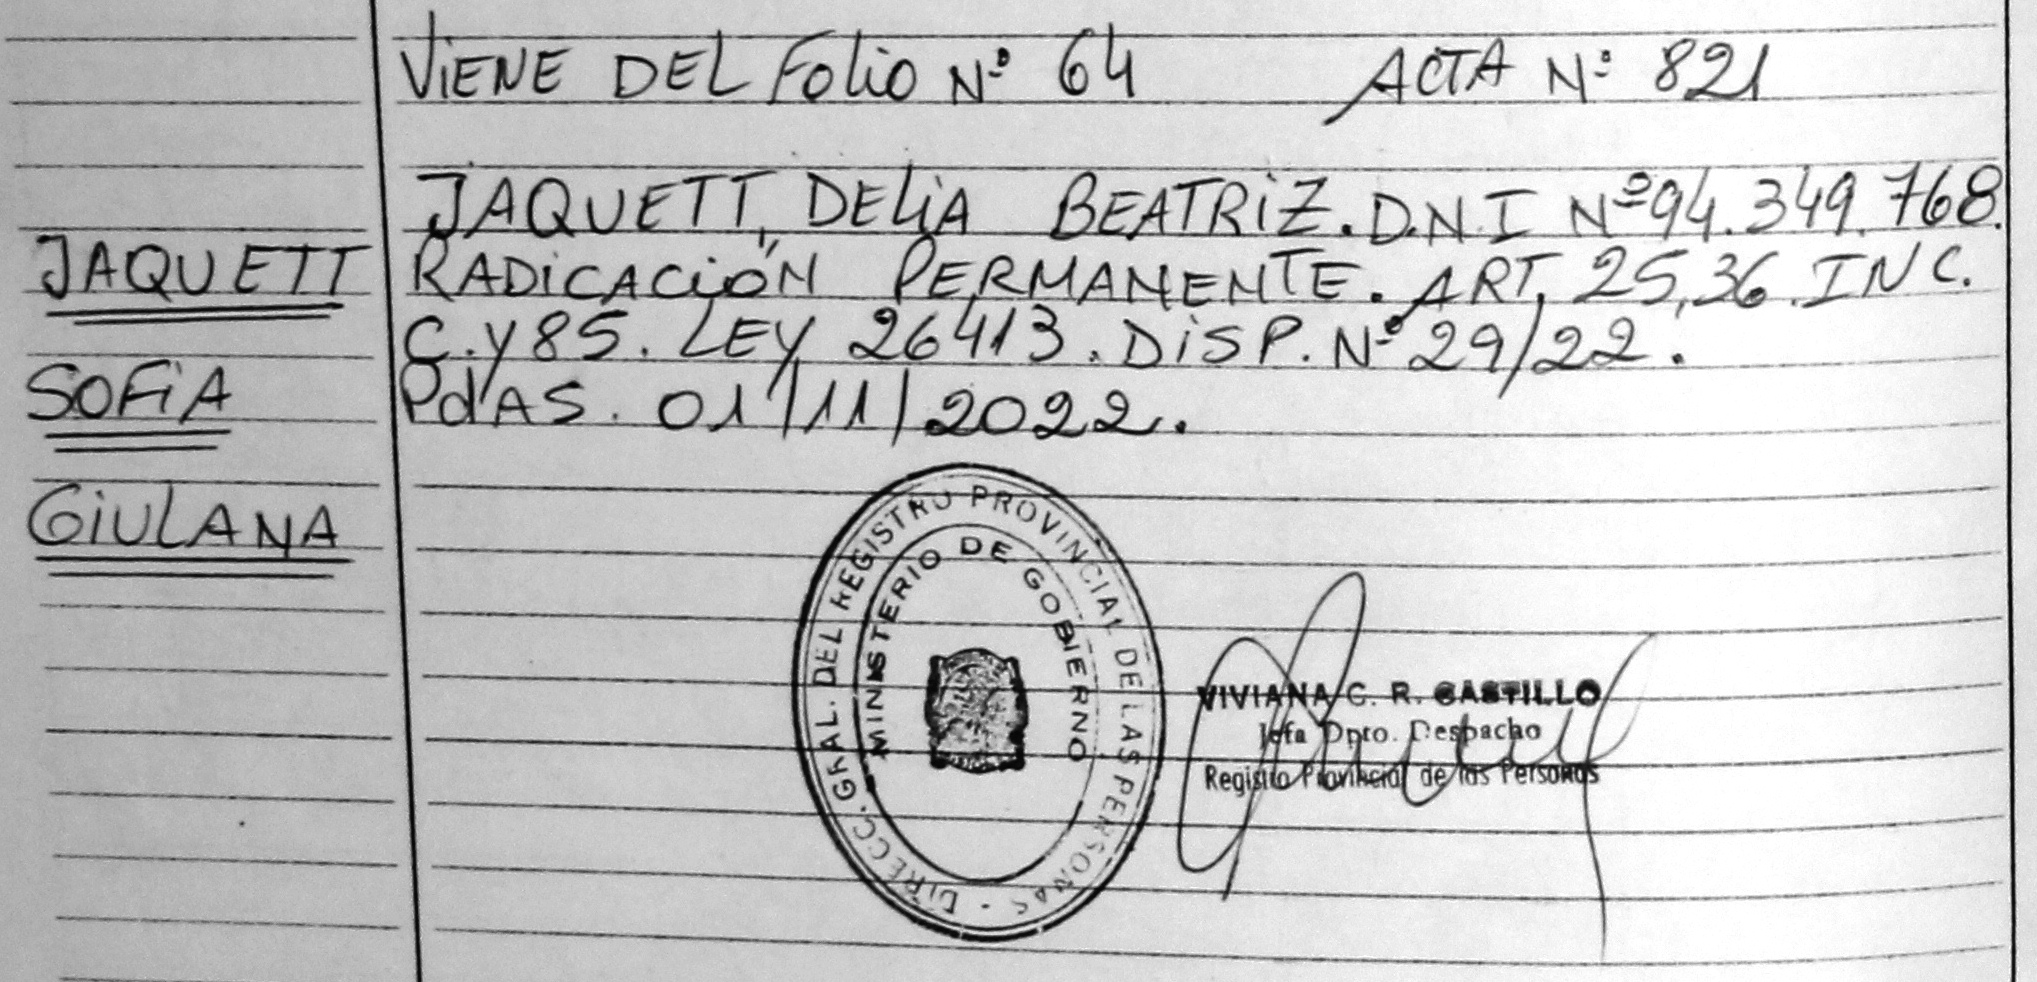 VIENE DEL FOLIO Nº 64 ACTA Nº 821
JAQUETT, DELIA BEATRIZ. D.N.I Nº 94.349.768.
RADICACIÓN PERMANENTE. ART, 25,36. INC.
C. Y 85. LEY 26413. DISP. Nº 29/22.
PdAS. 01/11/2022.
JAQUETT
SOFIA
GIULANA
DIRECC. GRAL. DEL REGISTRO PROVINCIAL DE LAS PERSONAS -
MINISTERIO DE GOBIERNO
VIVIANA C. R. CASTILLO
Jefa Dpto. Despacho
Registro Provincial de las Personas